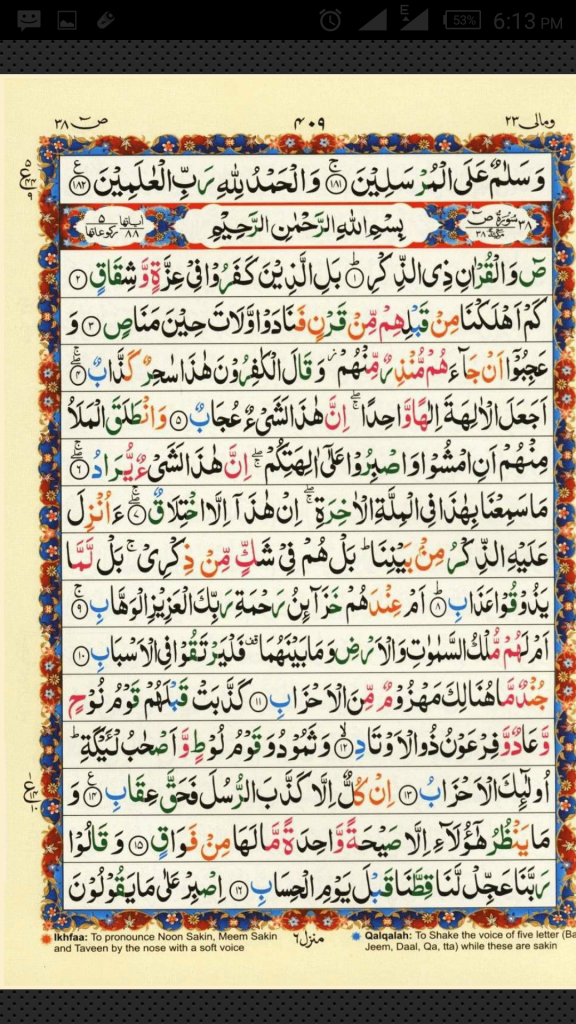 53% 6:13 PM
صٓ ٣٨ ۴٠٩ ومالی ٢٣
وَسَلٰمٌ عَلَی الْمُرْسَلِیْنَ ۚ﴿۱۸۱﴾ وَالْحَمْدُ لِلّٰهِ رَبِّ الْعٰلَمِیْنَ ﴿۱۸۲﴾
اٰیاتها ٨٨ رکوعاتها ۵ بِسْمِ اللّٰهِ الرَّحْمٰنِ الرَّحِیْمِ ٣٨ سُوْرَةُ صٓ مَکِّیَّةٌ ٣٨
صٓ وَالْقُرْاٰنِ ذِی الذِّکْرِ ؕ﴿۱﴾ بَلِ الَّذِیْنَ کَفَرُوْا فِیْ عِزَّةٍ وَّشِقَاقٍ ﴿۲﴾
کَمْ اَهْلَکْنَا مِنْ قَبْلِهِمْ مِّنْ قَرْنٍ فَنَادَوْا وَّلَاتَ حِیْنَ مَنَاصٍ ﴿۳﴾ وَ
عَجِبُوْۤا اَنْ جَآءَهُمْ مُّنْذِرٌ مِّنْهُمْ ؗ وَقَالَ الْکٰفِرُوْنَ هٰذَا سٰحِرٌ کَذَّابٌ ۖۚ﴿۴﴾
اَجَعَلَ الْاٰلِهَةَ اِلٰهًا وَّاحِدًا ۖۚ اِنَّ هٰذَا لَشَیْءٌ عُجَابٌ ﴿۵﴾ وَانْطَلَقَ الْمَلَاُ
مِنْهُمْ اَنِ امْشُوْا وَاصْبِرُوْا عَلٰۤی اٰلِهَتِکُمْ ۖۚ اِنَّ هٰذَا لَشَیْءٌ یُّرَادُ ۖۚ﴿۶﴾
مَا سَمِعْنَا بِهٰذَا فِی الْمِلَّةِ الْاٰخِرَةِ ۖۚ اِنْ هٰذَاۤ اِلَّا اخْتِلَاقٌ ۖۚ﴿۷﴾ ءَاُنْزِلَ
عَلَیْهِ الذِّکْرُ مِنْۢ بَیْنِنَا ؕ بَلْ هُمْ فِیْ شَکٍّ مِّنْ ذِکْرِیْ ۚ بَلْ لَّمَّا
یَذُوْقُوْا عَذَابِ ؕ﴿۸﴾ اَمْ عِنْدَهُمْ خَزَآئِنُ رَحْمَةِ رَبِّکَ الْعَزِیْزِ الْوَهَّابِ ۚ﴿۹﴾
اَمْ لَهُمْ مُّلْکُ السَّمٰوٰتِ وَالْاَرْضِ وَمَا بَیْنَهُمَا ۟ فَلْیَرْتَقُوْا فِی الْاَسْبَابِ ﴿۱۰﴾
جُنْدٌ مَّا هُنَالِکَ مَهْزُوْمٌ مِّنَ الْاَحْزَابِ ﴿۱۱﴾ کَذَّبَتْ قَبْلَهُمْ قَوْمُ نُوْحٍ
وَّعَادٌ وَّفِرْعَوْنُ ذُو الْاَوْتَادِ ۙ﴿۱۲﴾ وَثَمُوْدُ وَقَوْمُ لُوْطٍ وَّاَصْحٰبُ لْـَٔیْکَةِ ؕ
اُولٰٓئِکَ الْاَحْزَابُ ﴿۱۳﴾ اِنْ کُلٌّ اِلَّا کَذَّبَ الرُّسُلَ فَحَقَّ عِقَابِ ﴿۱۴﴾ وَ
مَا یَنْظُرُ هٰۤؤُلَآءِ اِلَّا صَیْحَةً وَّاحِدَةً مَّا لَهَا مِنْ فَوَاقٍ ﴿۱۵﴾ وَقَالُوْا
رَبَّنَا عَجِّلْ لَّنَا قِطَّنَا قَبْلَ یَوْمِ الْحِسَابِ ﴿۱۶﴾ اِصْبِرْ عَلٰی مَا یَقُوْلُوْنَ
Ikhfaa: To pronounce Noon Sakin, Meem Sakin منزل ٦ Qalqalah: To Shake the voice of five letter (Ba
and Taveen by the nose with a soft voice Jeem, Daal, Qa, tta) while these are sakin